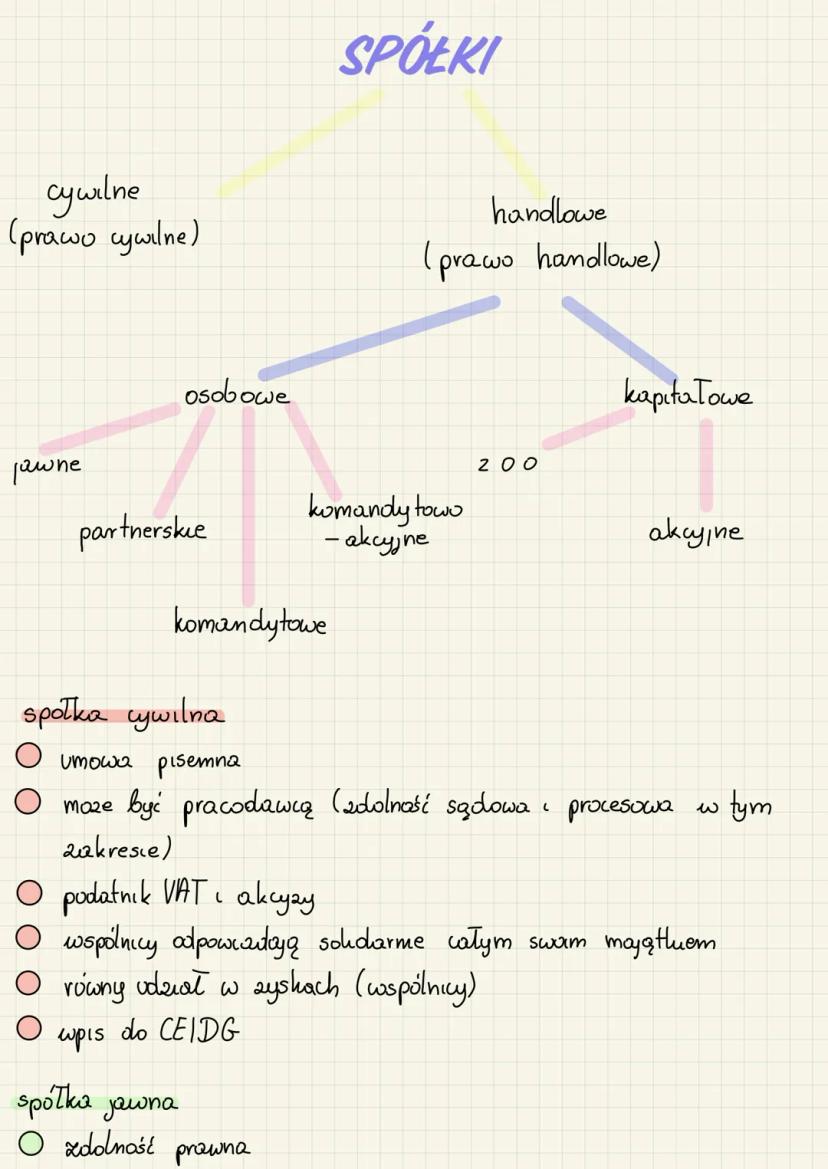 SPÓŁKI
cywilne
(prawo cywilne)
handlowe
(prawo handlowe)
osobowe
kapitałowe
jawne
z o o
partnerskie
komandytowo
- akcyjne
akcyjne
komandytowe
spółka cywilna
umowa pisemna
może być pracodawcą (zdolność sądowa i procesowa w tym
zakresie)
podatnik VAT i akcyzy
wspólnicy odpowiadają solidarnie całym swoim majątkiem
równy udział w zyskach (wspólnicy)
wpis do CEIDG
spółka jawna
zdolność prawna